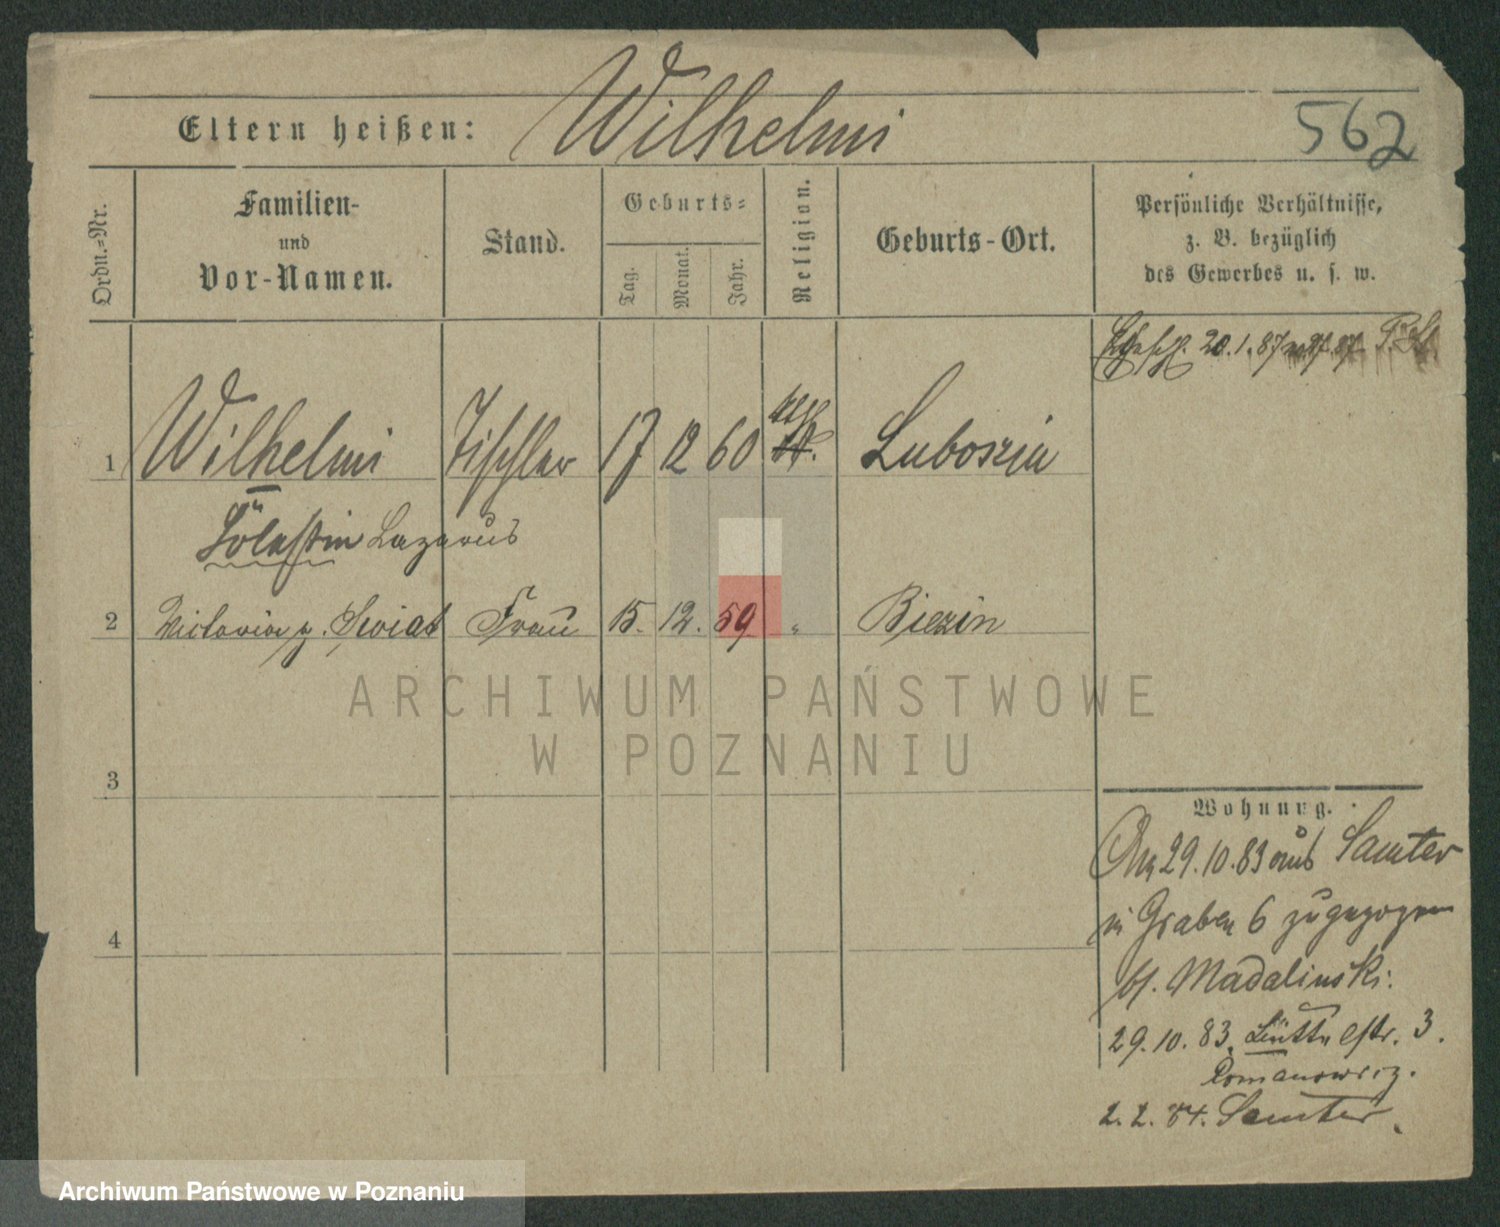 Eltern heißen: Wilhelmi 562
Ordn.=Nr.
Familien-
und
Vor-Namen.
Stand.
Geburts=
Tag.
Monat.
Jahr.
Religion.
Geburts-Ort.
Persönliche Verhältnisse,
z. B. bezüglich
des Gewerbes u. s. w.
20.1.87
1 Wilhelmi Tischler 17 12 60 Luboszin
Cölestin Lazarus
2 Victoria g. Swiat Frau 15. 12. 59 " Biezin
3
4
ARCHIWUM PAŃSTWOWE
W POZNANIU
Wohnung.
Am 29.10.83 aus Samter
in Graben 6 zugezogen
bj. Madalinski.
29.10.83. str. 3.
Romanowicz.
2.2.84. Samter.
Archiwum Państwowe w Poznaniu